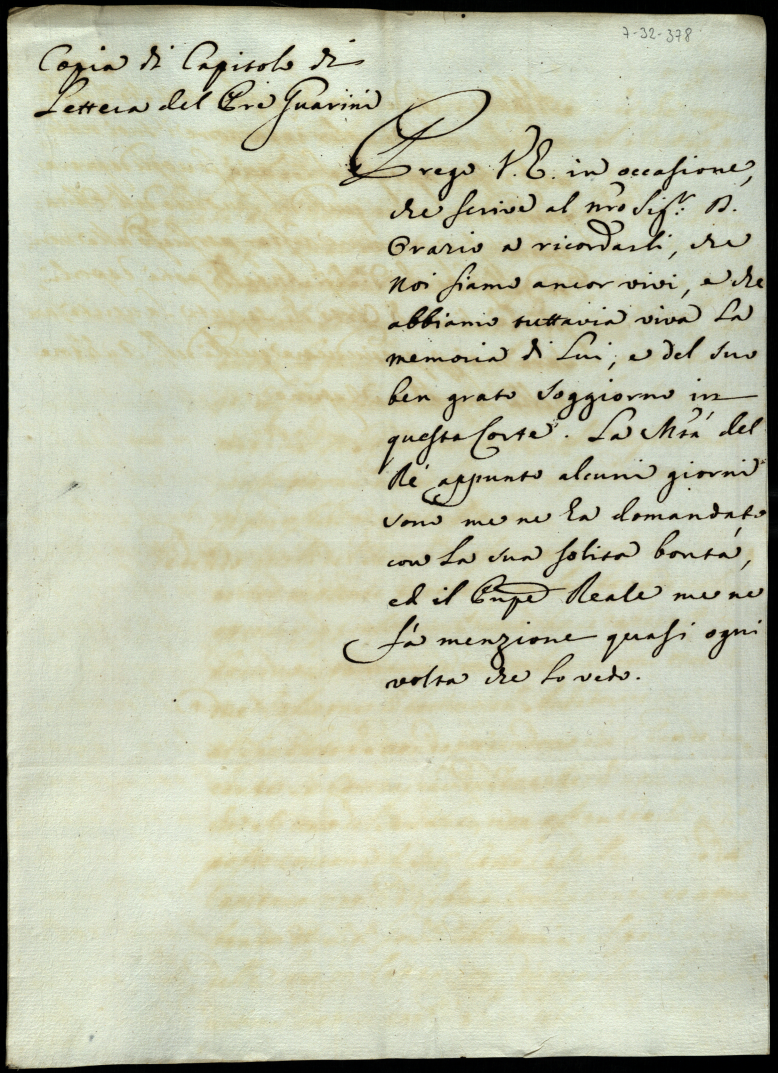 7-32-378
Copia di Capitolo di
Lettera del Pre Guarini
Prego V.E. in occasione,
che scrive al nro Sigr. D.
Orazio a ricordarli, che
noi siamo ancor vivi, e che
abbiamo tuttavia viva la
memoria di Lui, e del suo
ben grato soggiorno in
questa Corte. La Mtà del
Rè appunto alcuni giorni
sono me ne ha domandato
con la sua solita bontà,
ed il Pnpe Reale me ne
fà menzione quasi ogni
volta che lo vedo.